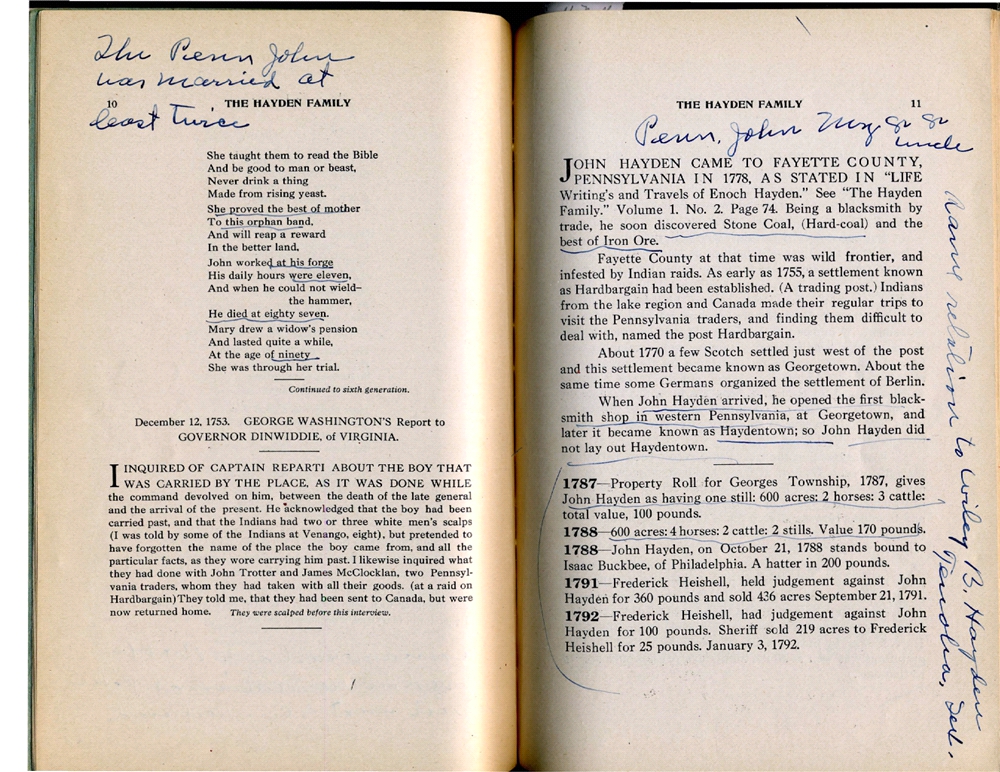 The Penn John
was married at
least twice
10 THE HAYDEN FAMILY
She taught them to read the Bible
And be good to man or beast,
Never drink a thing
Made from rising yeast.
She proved the best of mother
To this orphan band,
And will reap a reward
In the better land,
John worked at his forge
His daily hours were eleven,
And when he could not wield—
the hammer,
He died at eighty seven.
Mary drew a widow's pension
And lasted quite a while,
At the age of ninety
She was through her trial.
Continued to sixth generation.
December 12, 1753. GEORGE WASHINGTON'S Report to
GOVERNOR DINWIDDIE, of VIRGINIA.
I INQUIRED OF CAPTAIN REPARTI ABOUT THE BOY THAT
WAS CARRIED BY THE PLACE, AS IT WAS DONE WHILE
the command devolved on him, between the death of the late general
and the arrival of the present. He acknowledged that the boy had been
carried past, and that the Indians had two or three white men's scalps
(I was told by some of the Indians at Venango, eight), but pretended to
have forgotten the name of the place the boy came from, and all the
particular facts, as they wore carrying him past. I likewise inquired what
they had done with John Trotter and James McClocklan, two Pennsyl-
vania traders, whom they had taken with all their goods. (at a raid on
Hardbargain) They told me, that they had been sent to Canada, but were
now returned home. They were scalped before this interview.
THE HAYDEN FAMILY 11
Penn. John My gr gr
uncle
JOHN HAYDEN CAME TO FAYETTE COUNTY,
PENNSYLVANIA IN 1778, AS STATED IN "LIFE
Writing's and Travels of Enoch Hayden." See "The Hayden
Family." Volume 1. No. 2. Page 74. Being a blacksmith by
trade, he soon discovered Stone Coal, (Hard-coal) and the
best of Iron Ore.
Fayette County at that time was wild frontier, and
infested by Indian raids. As early as 1755, a settlement known
as Hardbargain had been established. (A trading post.) Indians
from the lake region and Canada made their regular trips to
visit the Pennsylvania traders, and finding them difficult to
deal with, named the post Hardbargain.
About 1770 a few Scotch settled just west of the post
and this settlement became known as Georgetown. About the
same time some Germans organized the settlement of Berlin.
When John Hayden arrived, he opened the first black-
smith shop in western Pennsylvania, at Georgetown, and
later it became known as Haydentown; so John Hayden did
not lay out Haydentown.
1787—Property Roll for Georges Township, 1787, gives
John Hayden as having one still: 600 acres: 2 horses: 3 cattle:
total value, 100 pounds.
1788—600 acres: 4 horses: 2 cattle: 2 stills. Value 170 pounds.
1788—John Hayden, on October 21, 1788 stands bound to
Isaac Buckbee, of Philadelphia. A hatter in 200 pounds.
1791—Frederick Heishell, held judgement against John
Hayden for 360 pounds and sold 436 acres September 21, 1791.
1792—Frederick Heishell, had judgement against John
Hayden for 100 pounds. Sheriff sold 219 acres to Frederick
Heishell for 25 pounds. January 3, 1792.
same relation to Wiley B. Hayden